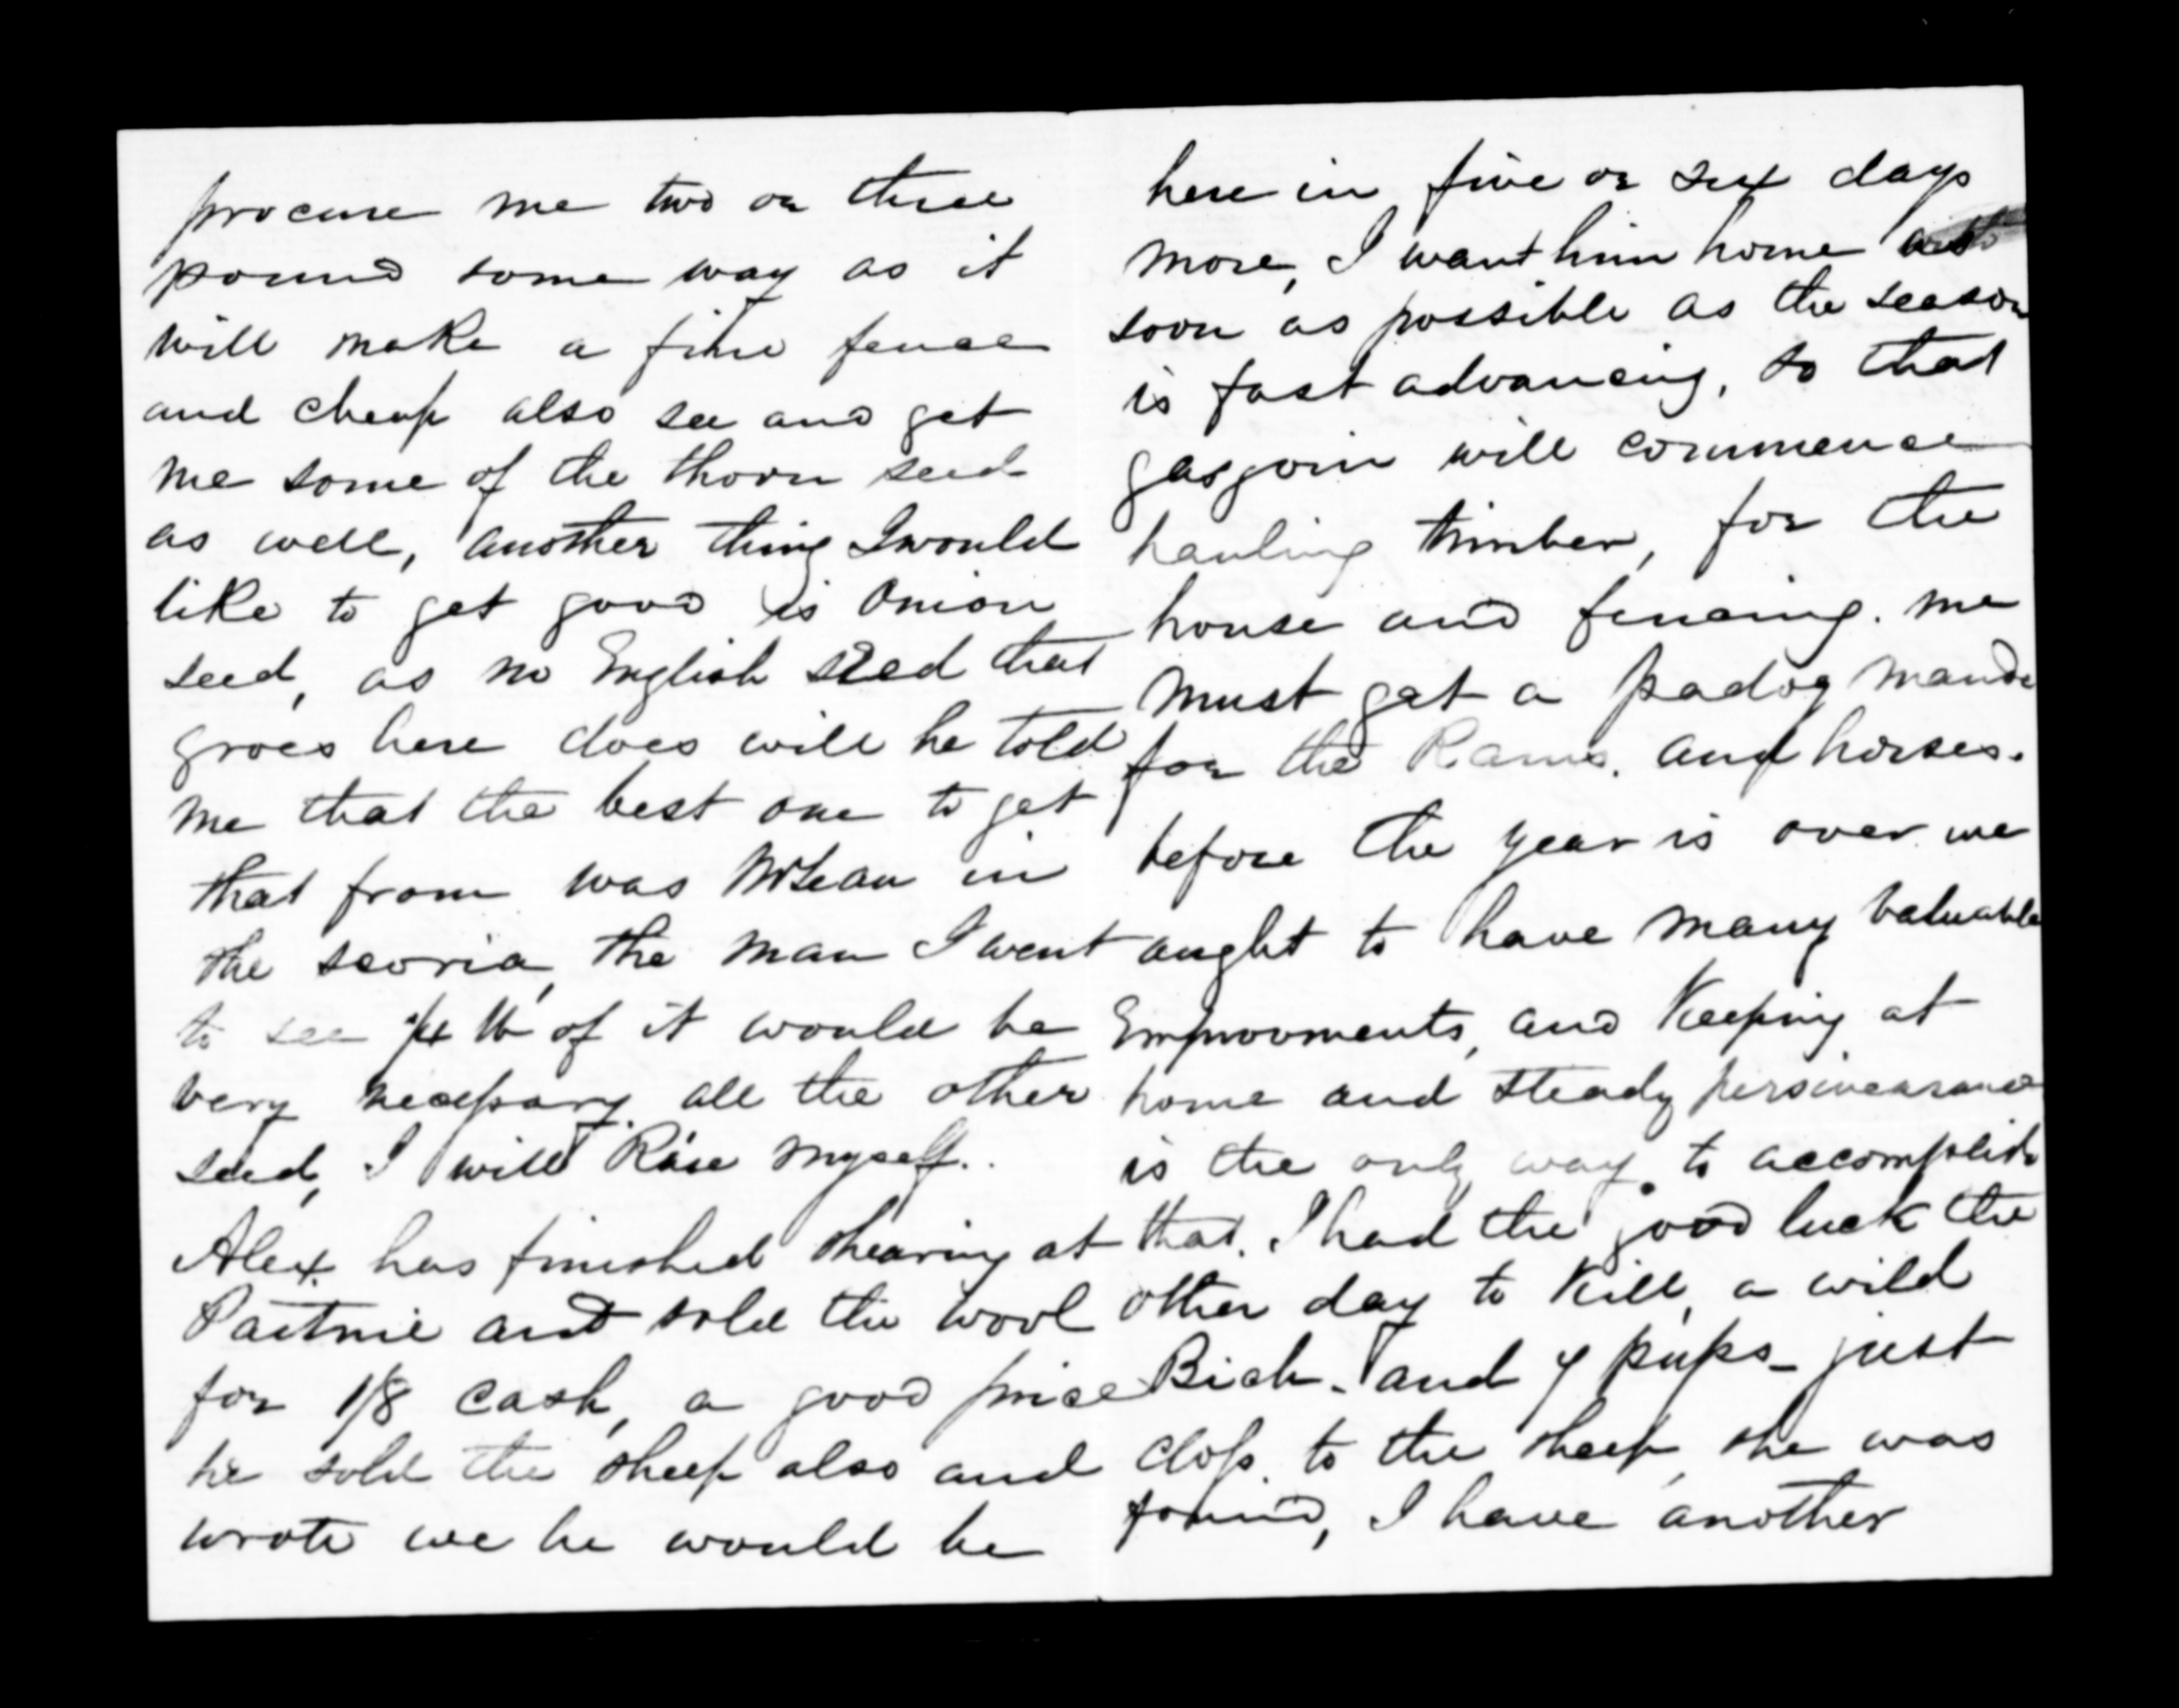 procure me two or three
pound some way as it
will make a fine fence
and cheap also see and get
me some of the thorn seed
as well, another thing I would
like to get good is Onion
seed, as no English seed that
groes here does will he told
me that the best one to get
that from was McLean in
the scoria, the man I went
to see ¼ lb of it would be
very necessary. all the other
seed, I will Raise myself.
Alex. has finished shearing at
and sold the wool
for 1/8 cash, a good price
he sold the sheep also and
wrote we he would be
here in five or six days
more, I want him home
soon as possible as the season
is fast advancing, so that
gasgoin will commence
hauling timber, for the
house and fencing. me
must get a padog
for the Rams. and horses.
before the year is over we
aught to have many valuable
Emprovments, and Keeping at
home and steady
is the only way. to accomplish
that. I had the good luck the
other day to Kill, a wild
Bich - and 7 pups - just
closs. to the sheep, she was
found, I have another